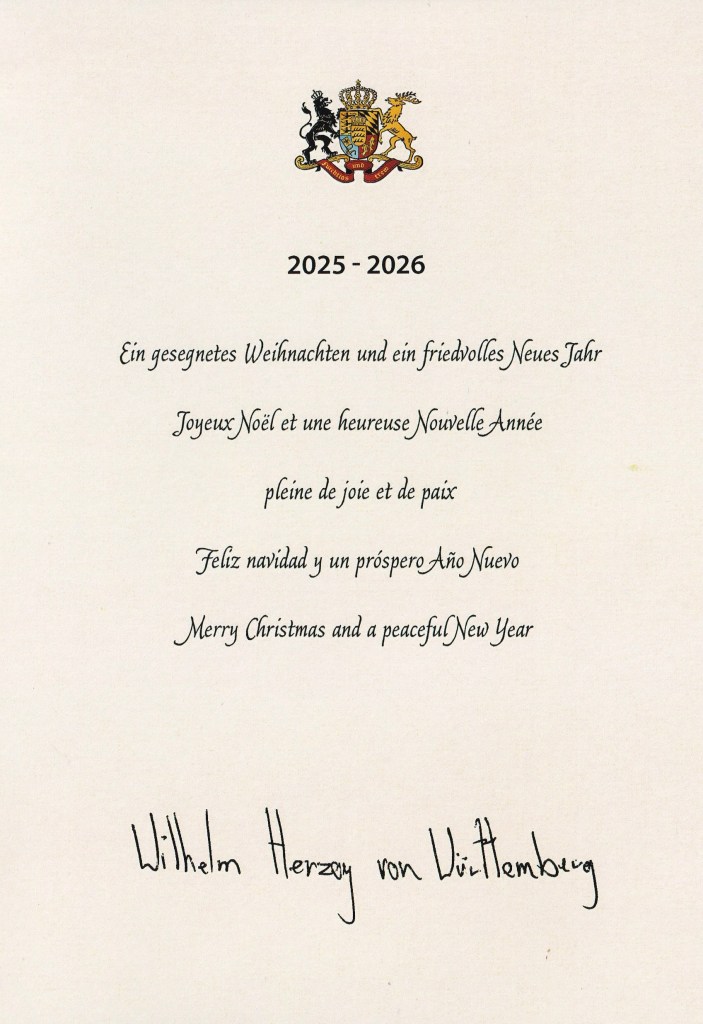 furchtlos und trew
2025 - 2026
Ein gesegnetes Weihnachten und ein friedvolles Neues Jahr
Joyeux Noël et une heureuse Nouvelle Année
pleine de joie et de paix
Feliz navidad y un próspero Año Nuevo
Merry Christmas and a peaceful New Year
Wilhelm Herzog von Württemberg